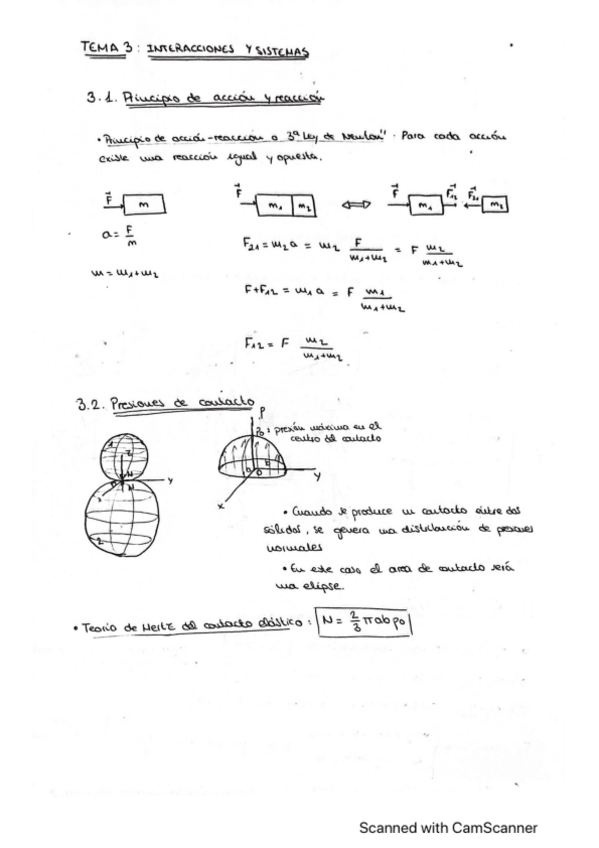 TEMA 3: INTERACCIONES Y SISTEMAS
3.1. Principio de acción y reacción
• "Principio de acción-reacción o 3ª Ley de Newton". Para cada acción
existe una reacción igual y opuesta.
F m
F m1 m2
F m1 F12 F21 m2
a = F/m
F21 = m2 a = m2 F/(m1+m2) = F m2/(m1+m2)
m = m1+m2
F+F12 = m1 a = F m1/(m1+m2)
F12 = F m2/(m1+m2)
3.2. Presiones de contacto
P
p0: presión máxima en el
centro del contacto
1 z N N y 2
x y
• Cuando se produce un contacto entre dos
sólidos, se genera una distribución de presiones
normales
• En este caso el area de contacto será
una elipse.
• Teoría de Hertz del contacto elástico: N = 2/3 π a b p0
Scanned with CamScanner